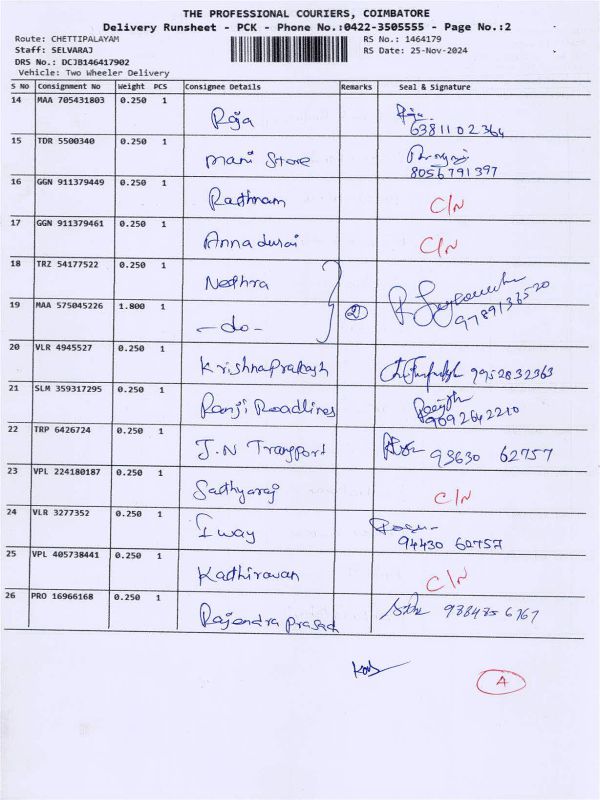 THE PROFESSIONAL COURIERS, COIMBATORE
Delivery Runsheet - PCK - Phone No.:0422-3505555 - Page No.:2
Route: CHETTIPALAYAM RS No.: 1464179
Staff: SELVARAJ RS Date: 25-Nov-2024
DRS No.: DCJB146417902
Vehicle: Two Wheeler Delivery
S No Consignment No Weight PCS Consignee Details Remarks Seal & Signature
14 MAA 705431803 0.250 1 Roja
6381102364
15 TDR 5500340 0.250 1 Mani Store
8056791397
16 GGN 911379449 0.250 1 Rathnam C/N
17 GGN 911379461 0.250 1 Annadurai C/N
18 TRZ 54177522 0.250 1 Nethra
9789136520
19 MAA 575045226 1.800 1 -do- 2
20 VLR 4945527 0.250 1 Krishnaprakash 9952832363
21 SLM 359317295 0.250 1 Ranji Roadlines
9092642210
22 TRP 6426724 0.250 1 J.N Transport 93630 62757
23 VPL 224180187 0.250 1 Sathyaraj C/N
24 VLR 3277352 0.250 1 I way
94430 60757
25 VPL 405738441 0.250 1 Kathiravan C/N
26 PRO 16966168 0.250 1 Rajendra prasad
A